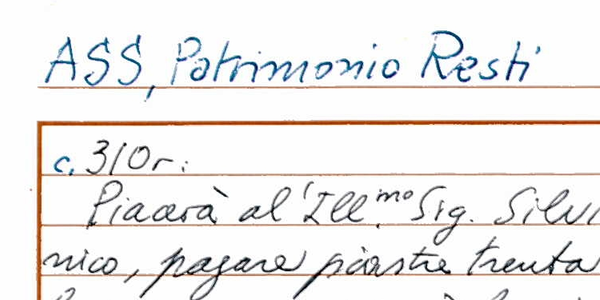 ASS, Patrimonio Resti
c. 310r:
Piacerà al Ill.mo Sig. Silvi
nico, pagare piastre trenta